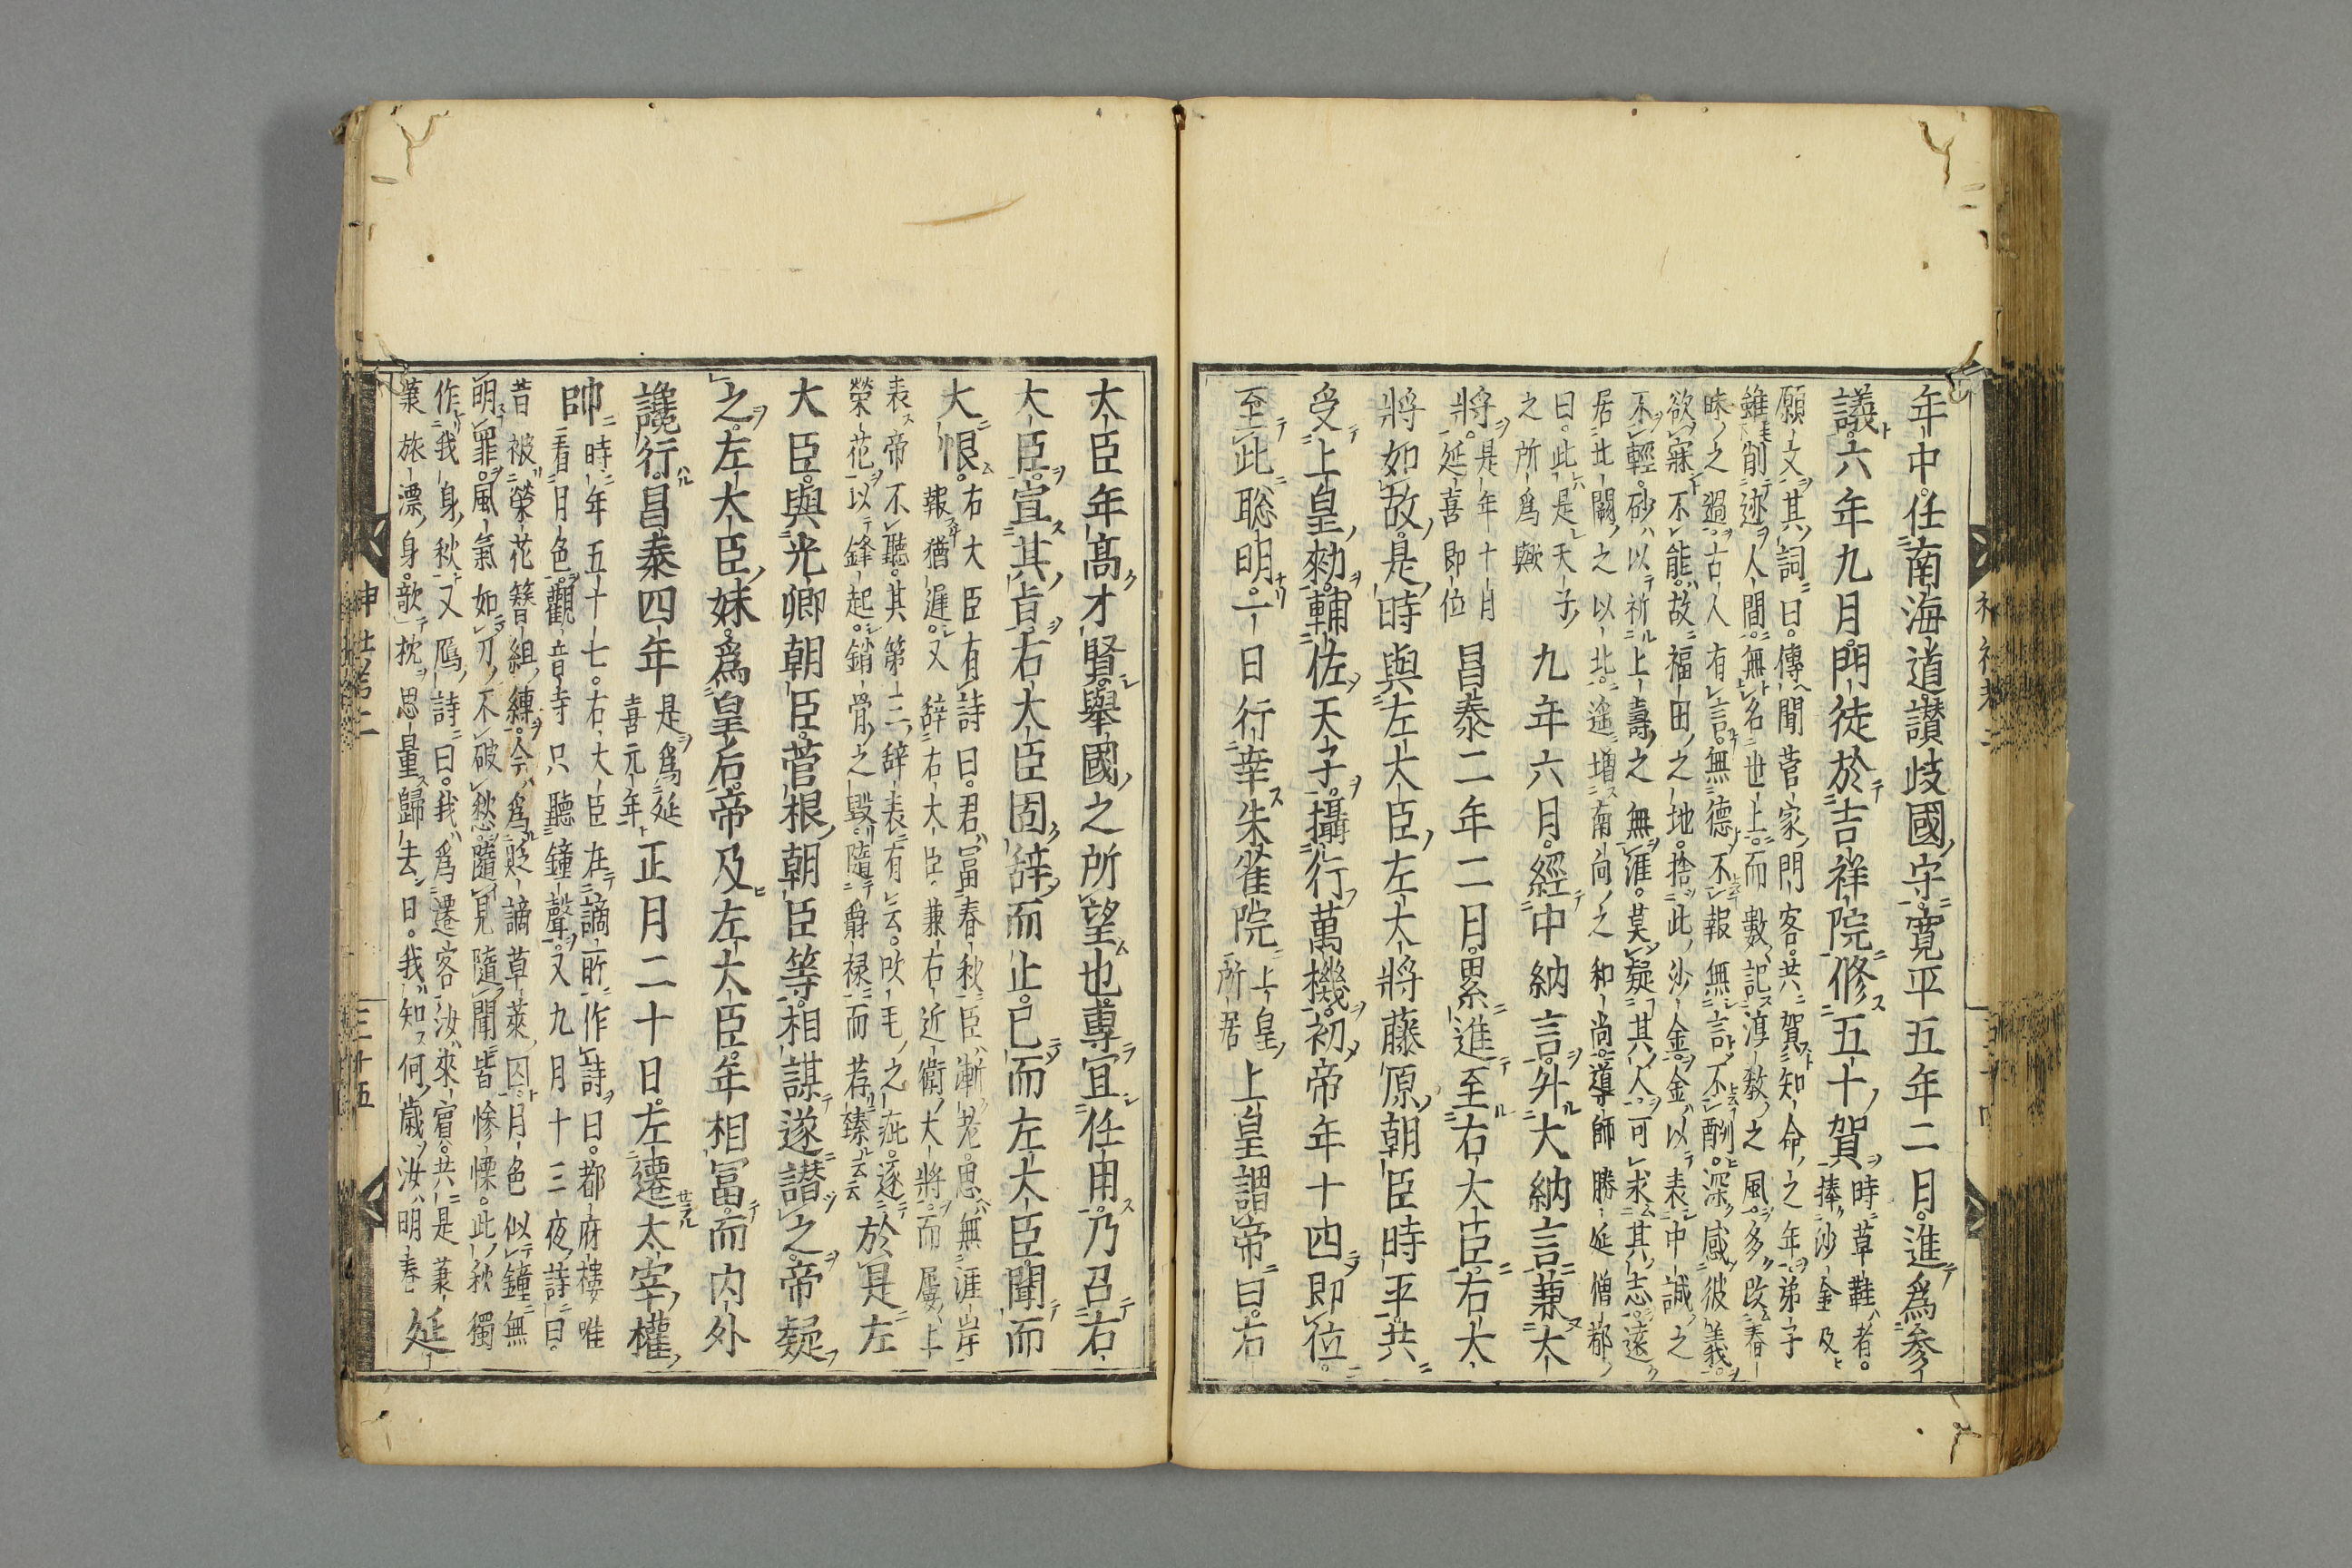 年中任南海道讃岐國守寛平五年二月進爲參
議六年九月門徒於吉祥院修五十賀時草鞋者
捧沙金及
願文其詞曰傳聞菅家門客共賀知命之年弟子
雖削迹人間無名世上而數記淳教之風多改春
昧之過古人有言無德不報無言不酬深感彼義
欲寐不能故福田之地捨此沙金金以表中誠之
不輕砂以祈上壽之無涯莫疑其人可求其志遠
居北闕之以北遙増南向之和尚導師勝延僧都
曰此是天子
之所爲歟
九年六月經中納言外大納言兼太
將是年十月
延喜即位
昌泰二年二月累進至右大臣右大
將如故是時與左大臣左大將藤原朝臣時平共
受上皇勅輔佐天子攝行萬機初帝年十四即位
至此聡明一日行幸朱雀院上皇
所居
上皇謂帝曰右
大臣年高才賢舉國之所望也專宜任用乃召右
大臣宣其旨右大臣固辞而止已而左大臣聞而
大恨右大臣有詩曰君冨春秋臣漸老恩無涯岸
報猶遲又辞右大臣兼右近衛大將而屢上
表帝不聽其第三辞表有云吹毛之疵逐
榮花以鋒起銷骨之毀隨爵禄而荐臻云云
於是左
大臣與光卿朝臣菅根朝臣等相謀遂譖之帝疑
之左大臣妹爲皇后帝及左大臣年相冨而内外
讒行昌泰四年是爲延
喜元年
正月二十日左遷太宰權
帥時年五十七右大臣在謫所作詩曰都府樓唯
看月色觀音寺只聽鐘聲又九月十三夜詩曰
昔被榮花簪組縛今爲貶謫草萊囚月色似鐘無
明罪風氣如刀不破愁隨見隨聞皆惨慄此秋獨
作我身秋又鴈詩曰我爲遷客汝來賓共是䔥
䔥旅漂身歌枕思量歸去日我知何歳汝明春
延
神社第二
三十五